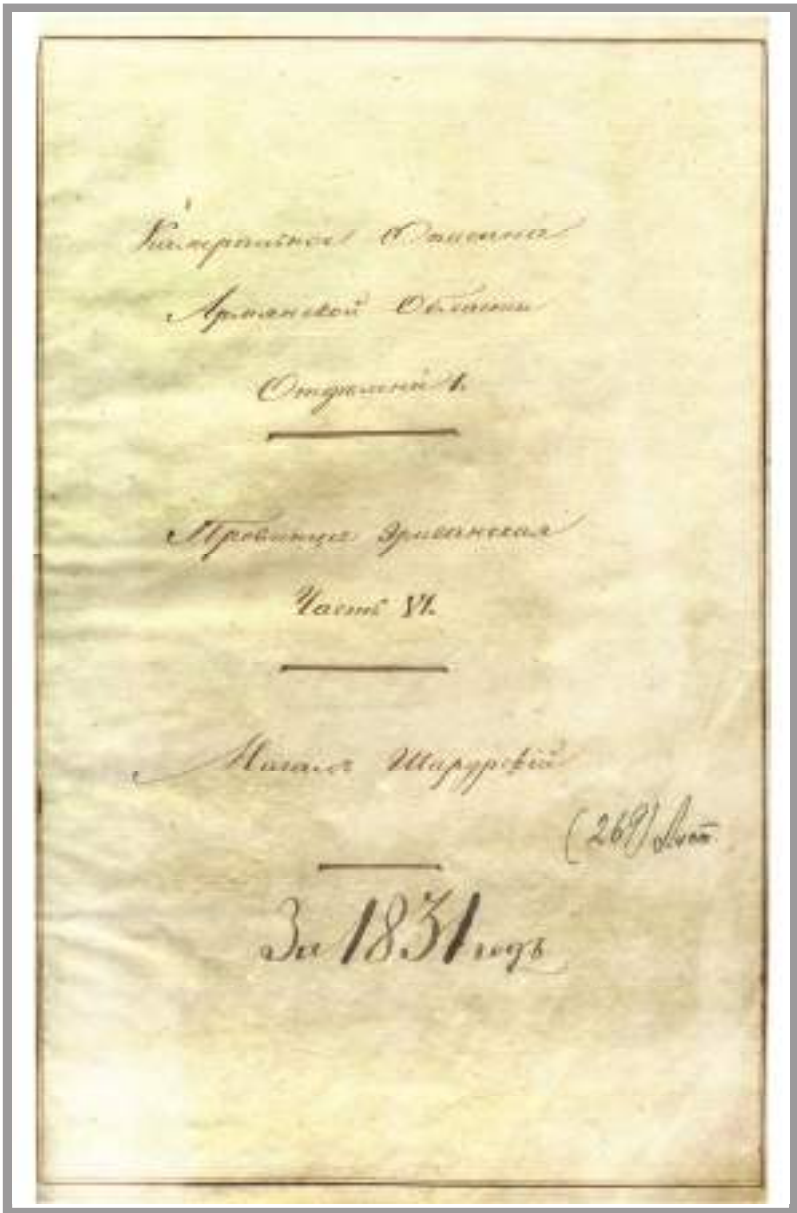 Камеральное Описание
Армянской Области
Отделение I.
Провинция Эриванская
Часть VI.
Магалъ Шарурскій
(269) Лист.
За 1831 годъ